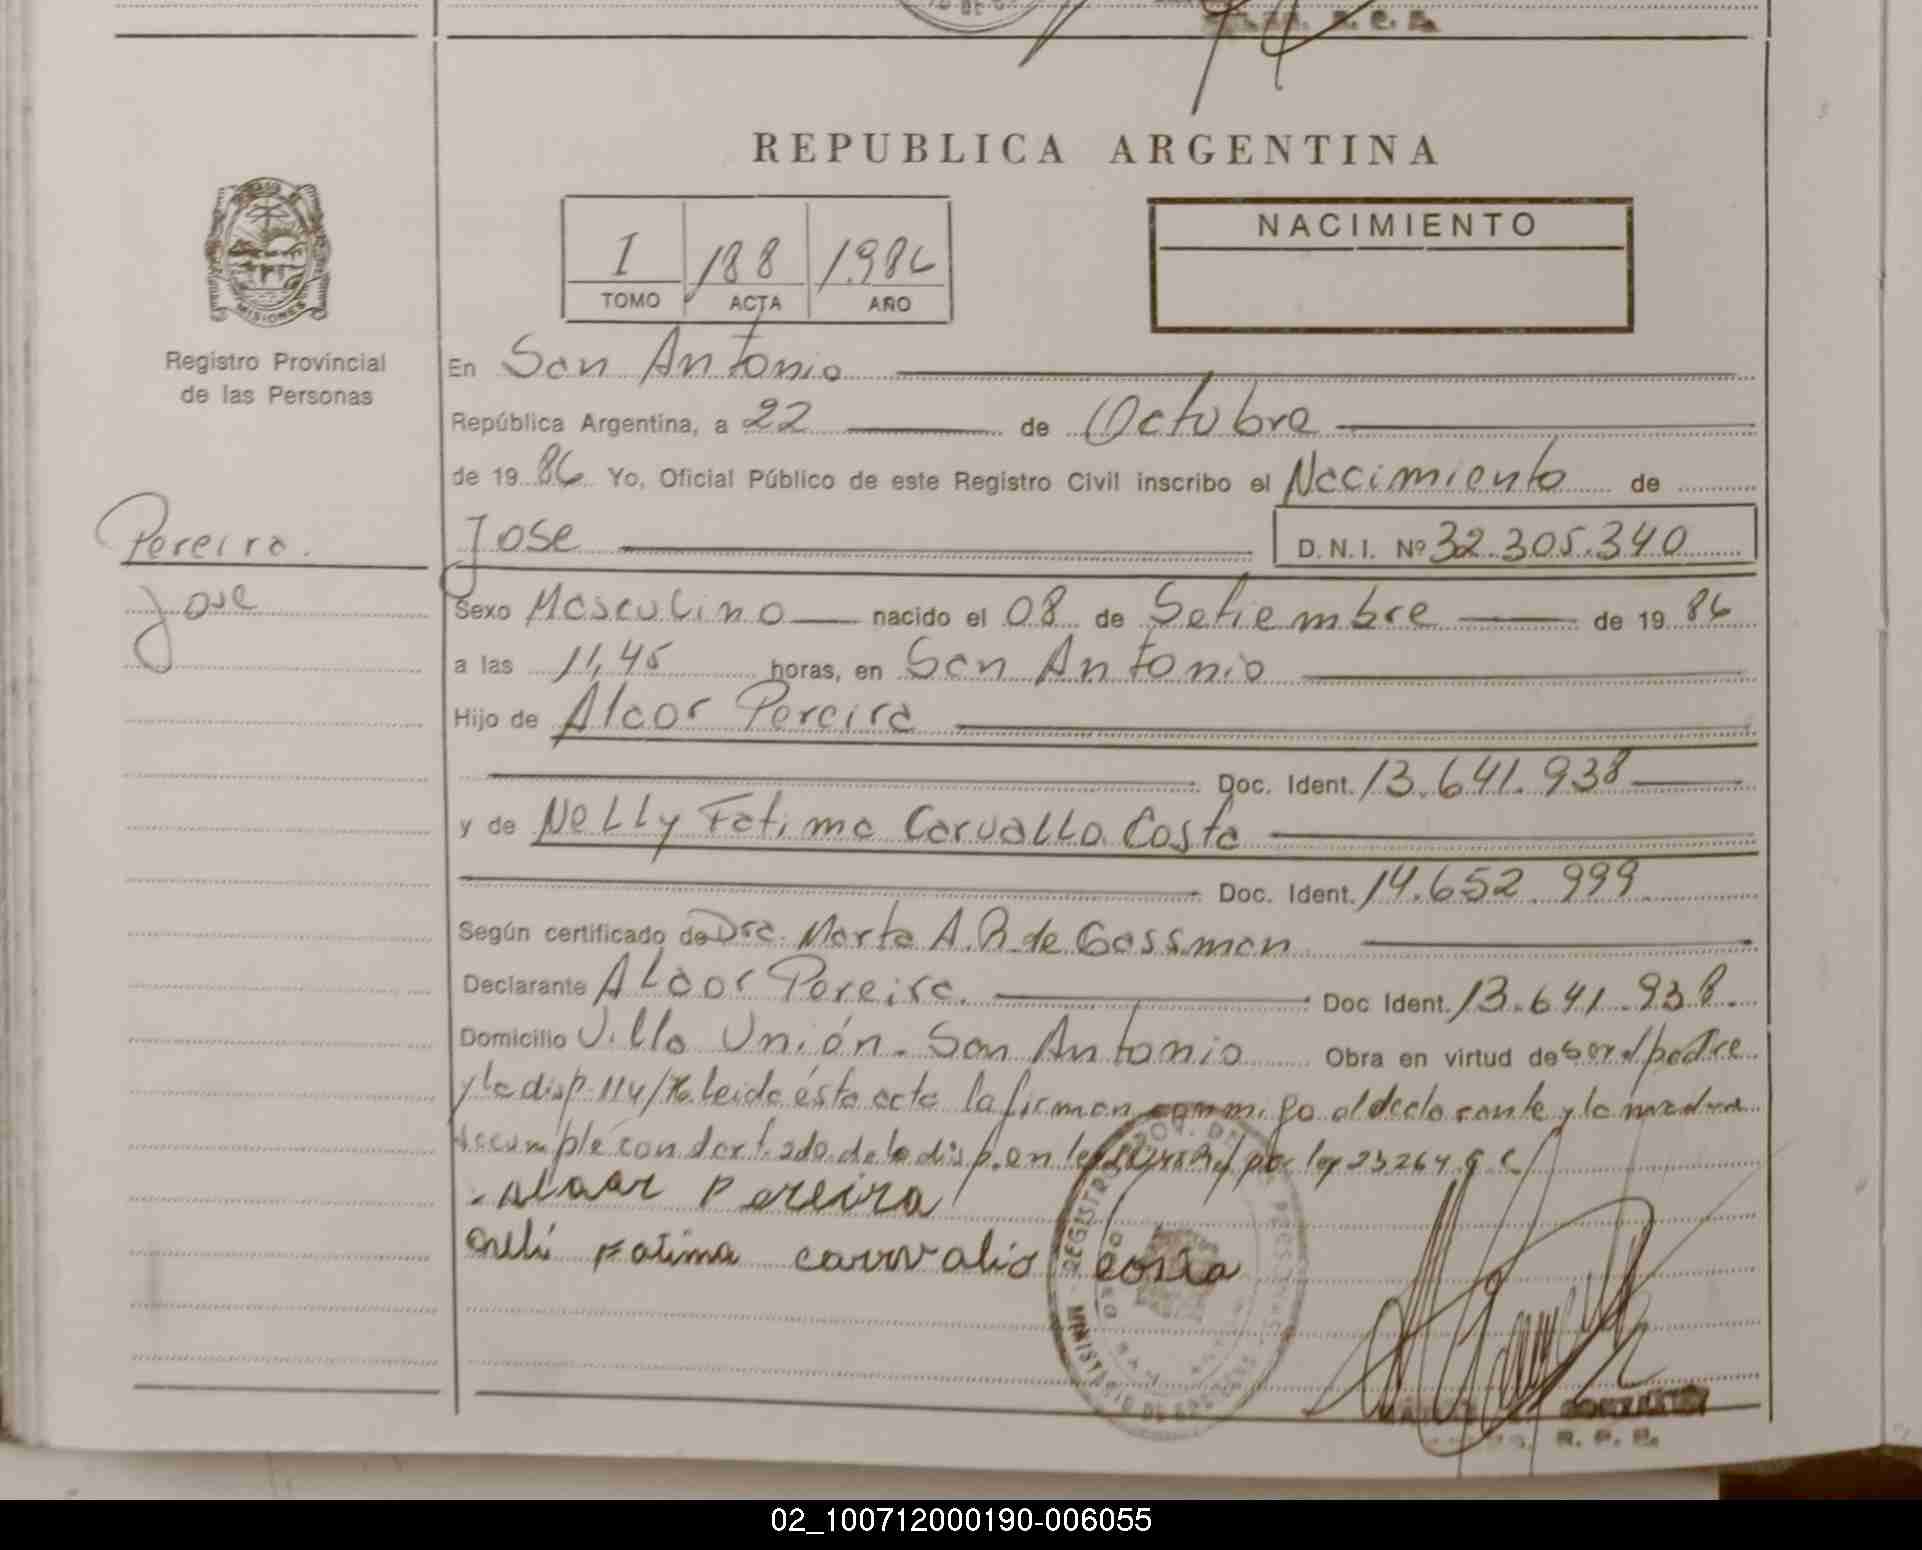 REPUBLICA ARGENTINA
NACIMIENTO
I 188 1.986
TOMO ACTA AÑO
MISIONES
Registro Provincial
de las Personas
Pereira.
Jose
En San Antonio
República Argentina, a 22 de Octubre
de 1986 Yo, Oficial Público de este Registro Civil inscribo el Nacimiento de
Jose D.N.I. Nº 32.305.340
Sexo Masculino nacido el 08 de Setiembre de 1986
a las 11,45 horas, en San Antonio
Hijo de Alaor Pereira
Doc. Ident. 13.641.938
y de Nelly Fatima Carvallo Costa
Doc. Ident. 14.652.999
Según certificado de Dra. Marta A.R. de Gassman
Declarante Alaor Pereira. Doc Ident. 13.641.938.
Domicilio Villa Unión - San Antonio Obra en virtud de ser el padre
y la disp. 114/86 leida ésta acta la firman conmigo el declarante y la madre
se cumple con dictado de la disp. en por ley 23264
Alaor Pereira
Neli Fatima carvalio costa
REGISTRO PROV. DE LAS PERSONAS
MINISTERIO DE GOBIERNO
GONZALEZ
R. P. P.
02_100712000190-006055